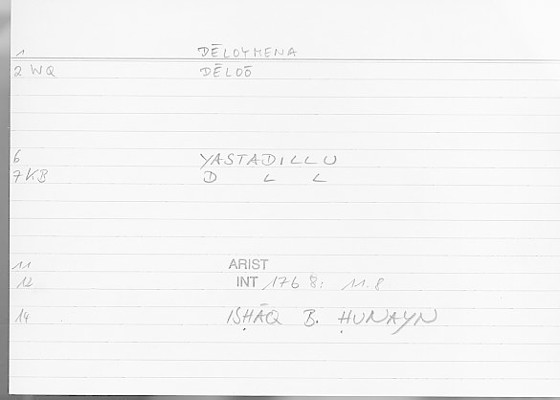 1 DĒLOYMENA
2 WQ DĒLOŌ
6 YASTADILLU
7 KB D L L
11 ARIST
12 INT 176 8: 11.8
14 ISḤĀQ B. ḤUNAYN